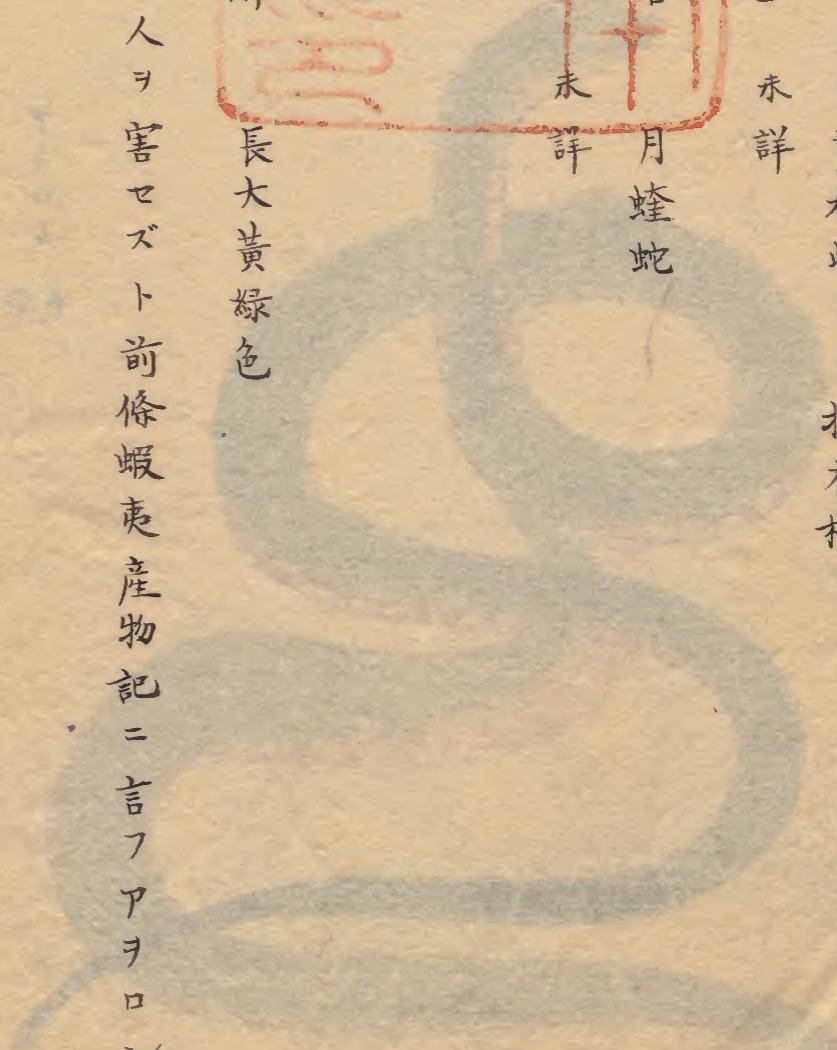 未詳
月蝰蛇
未詳
長大黃緑色
人ヲ害セズト前條蝦夷産物記ニ言フアヲロ